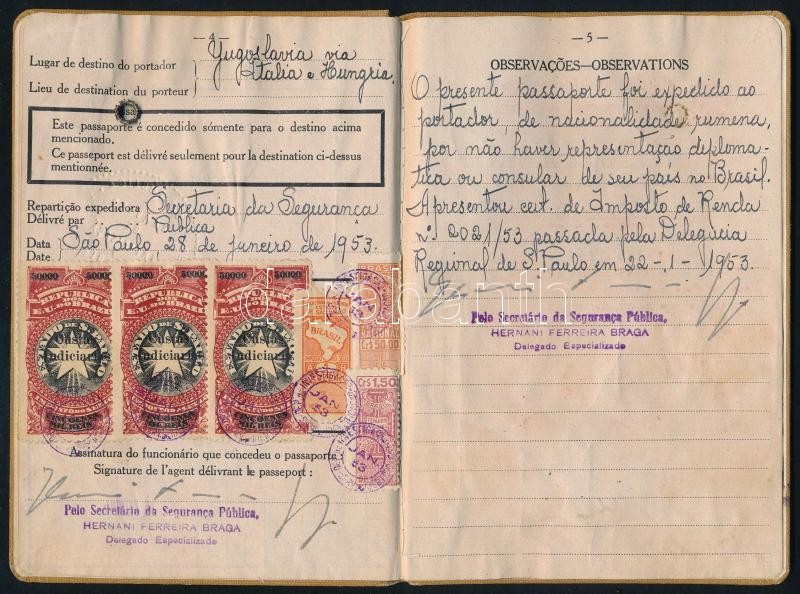 —4—
Lugar de destino do portador Yugoslavia via
Lieu de destination du porteur Italia e Hungria.
Este passaporte é concedido sómente para o destino acima
mencionado.
Ce passeport est délivré seulement pour la destination ci-dessus
mentionnée.
Repartição expedidora Secretaria da Segurança
Délivré par Publica
Data São Paulo, 28 de janeiro de 1953.
Date
50000 50000 50000 50000 50000 50000
REPUBLICA REPUBLICA REPUBLICA
DOS DOS DOS
E.U. DO BRAZIL E.U. DO BRAZIL E.U. DO BRAZIL
Custa Custa Custa
Judiciaria Judiciaria Judiciaria
CINCOENTA CINCOENTA CINCOENTA
MIL REIS MIL REIS MIL REIS
BRASIL
CR$ 50,00
CR$ 1,50
JAN
53
JAN
53
Assinatura do funcionário que concedeu o passaporte
Signature de l'agent délivrant le passeport :
Pelo Secretário da Segurança Pública,
HERNANI FERREIRA BRAGA
Delegado Especializado
—5—
OBSERVAÇÕES—OBSERVATIONS
O presente passaporte foi expedido ao
portador, de nacionalidade rumena,
por não haver representação diploma-
tica ou consular de seu país no Brasil.
Apresentou cert. de Imposto de Renda
nº. 2021/53 passada pela Delegacia
Regional de S. Paulo em 22-1-1953.
Pelo Secretário da Segurança Pública,
HERNANI FERREIRA BRAGA
Delegado Especializado
darabanth